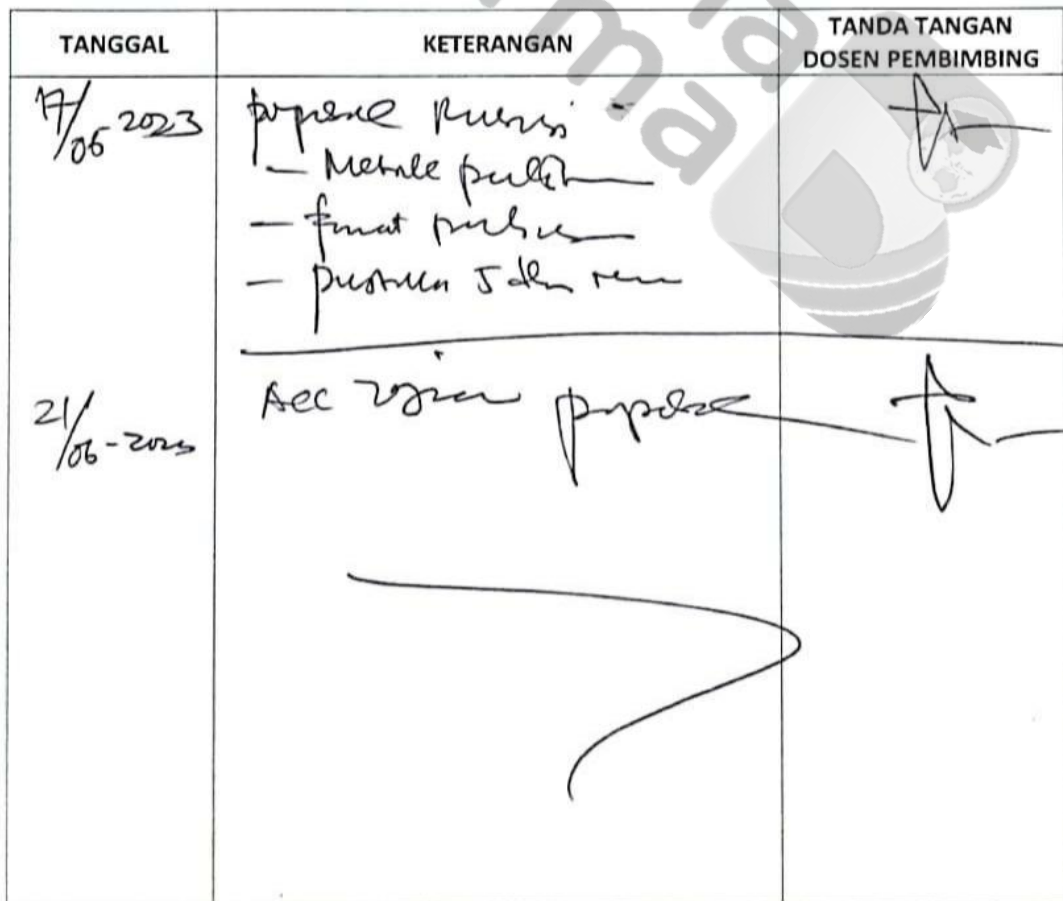 TANGGAL
KETERANGAN
TANDA TANGAN
DOSEN PEMBIMBING
17/06 2023
proposal Revisi -
- Metode
- format
- pustaka 5
21/06-2023
Acc Ujian proposal